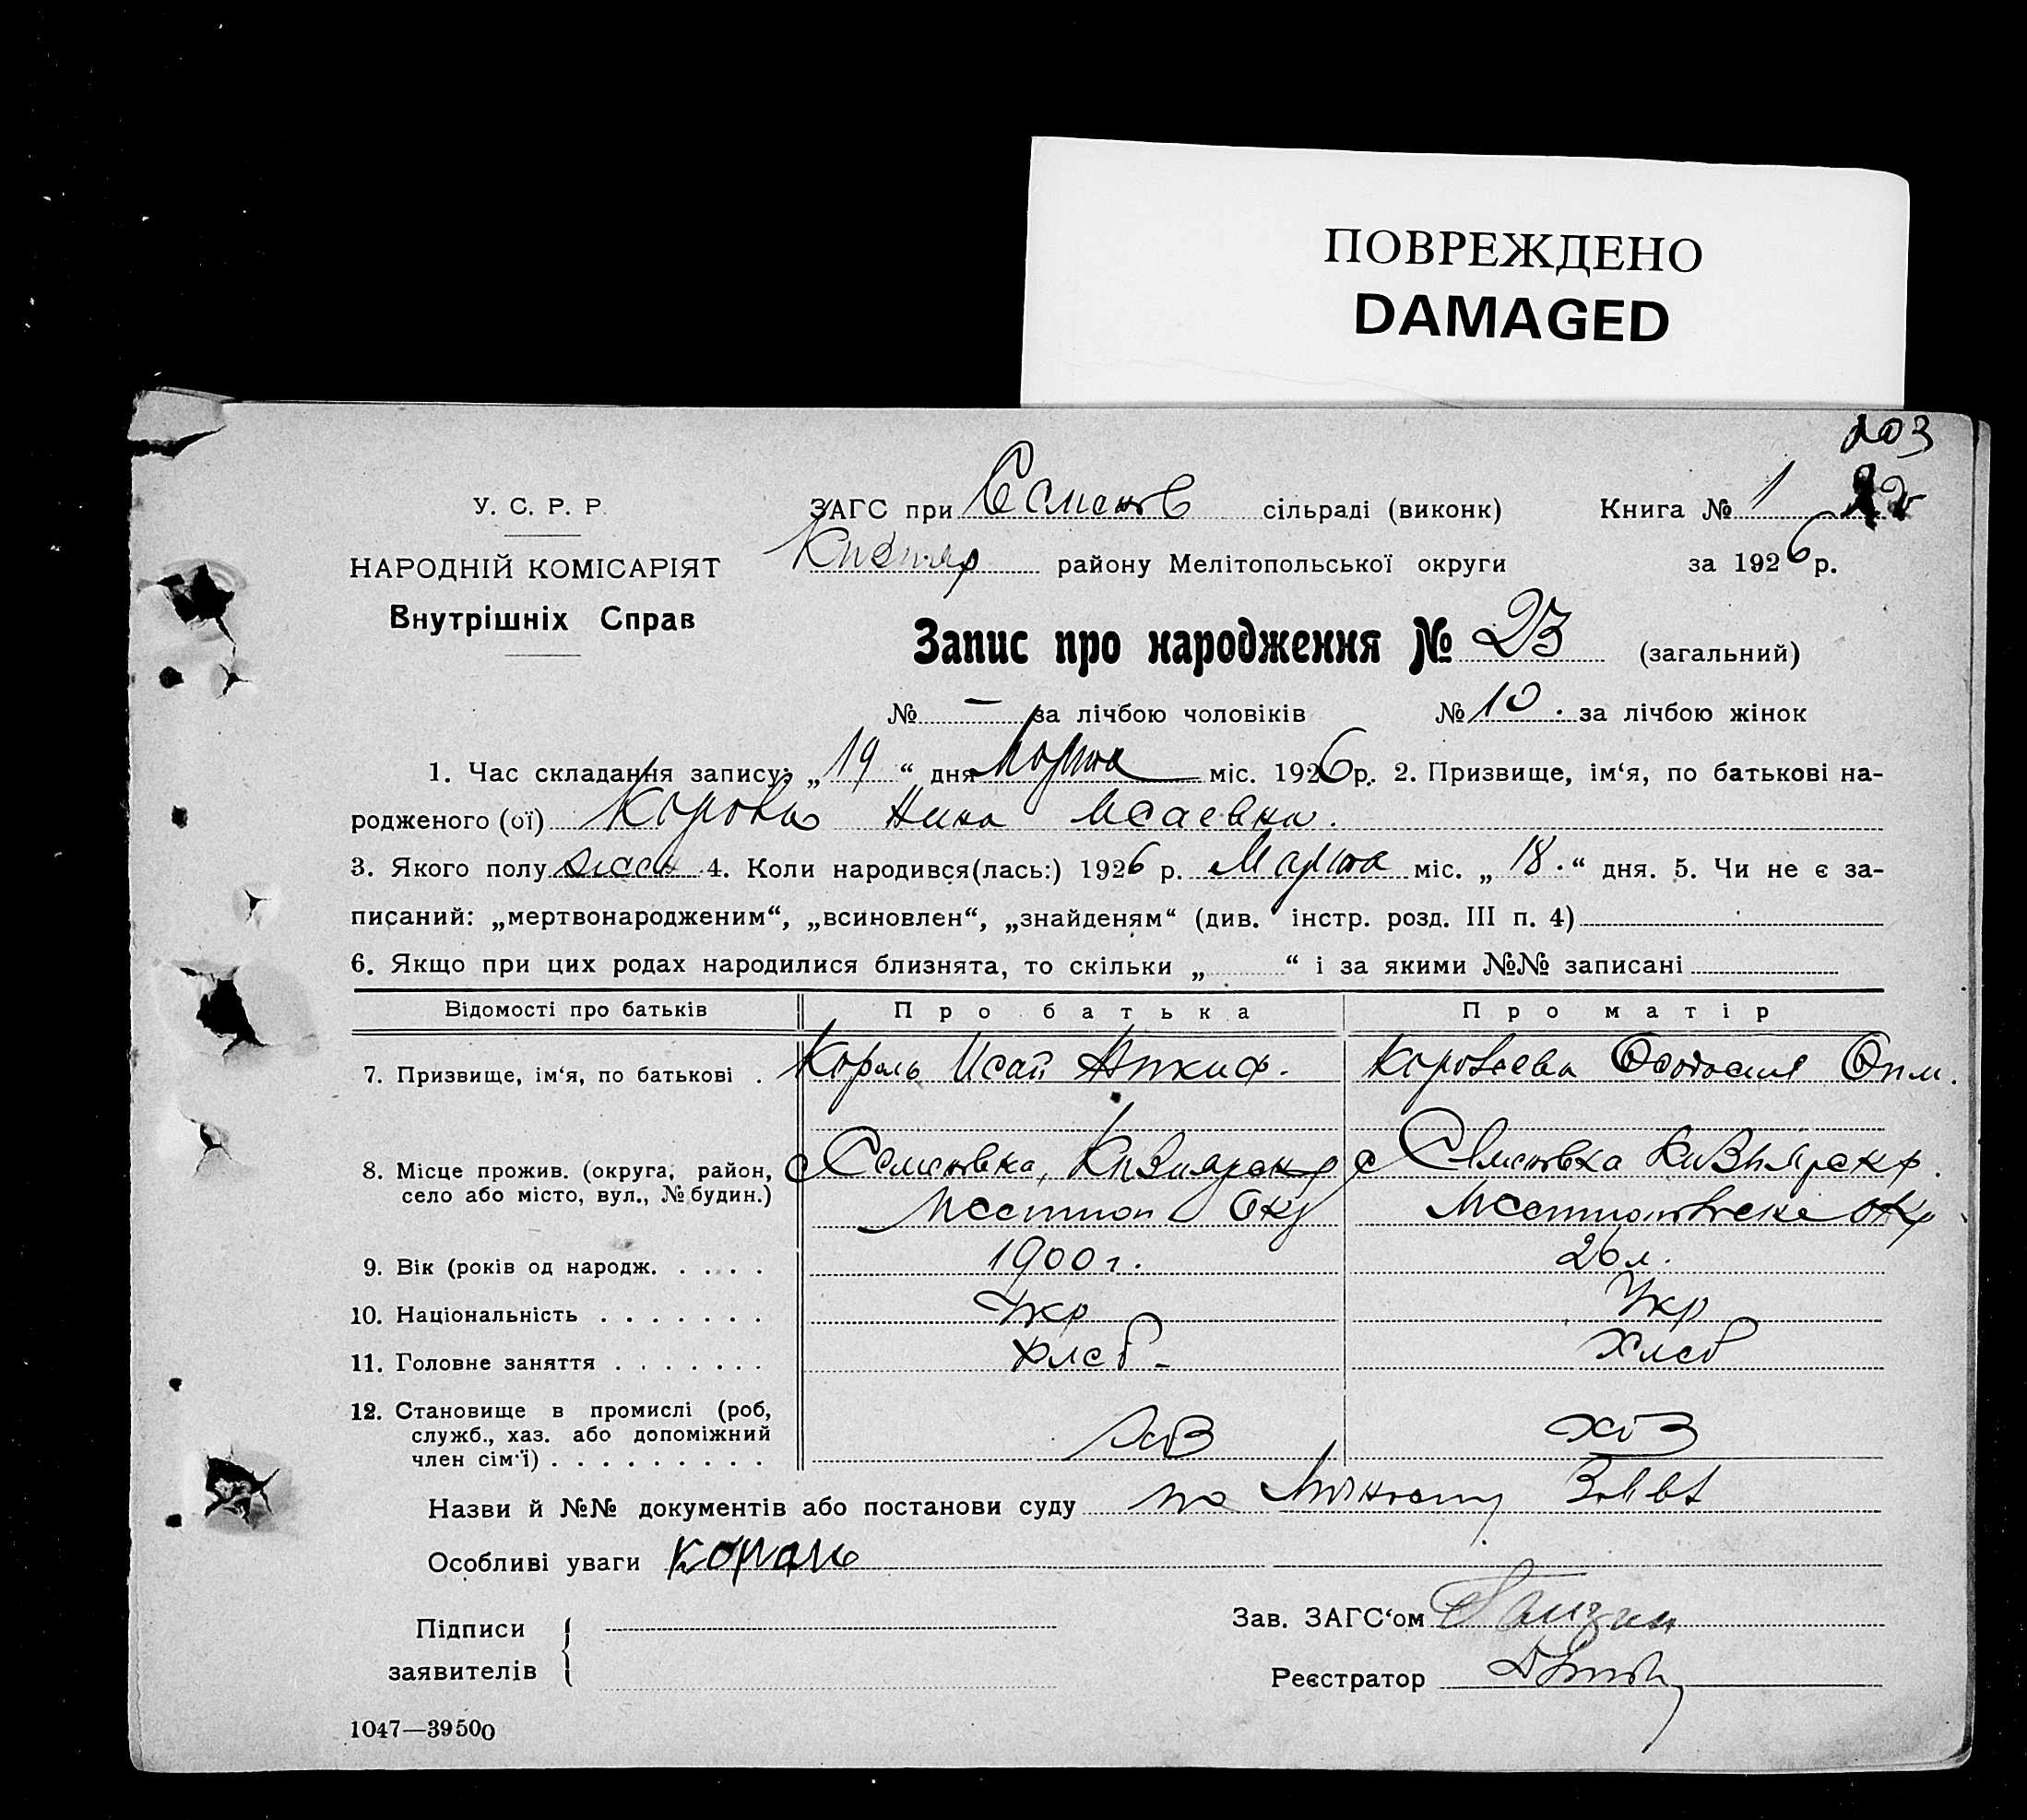 ПОВРЕЖДЕНО
DAMAGED
203
У. С. Р. Р.
НАРОДНІЙ КОМІСАРІЯТ
Внутрішніх Справ
ЗАГС при Семенов сільраді (виконк) Книга № 1
Кизияр району Мелітопольської округи за 1926 р.
Запис про народження № 23 (загальний)
№ — за лічбою чоловіків № 10. за лічбою жінок
1. Час складання запису: „19“ дня Марта міс. 1926 р. 2. Призвище, ім‘я, по батькові на-
родженого (ої) Король Нина Исаевна.
3. Якого полу 4. Коли народився(лась:) 1926 р. Марта міс. „18.“ дня. 5. Чи не є за-
писаний: „мертвонародженим“, „всиновлен“, „знайденям“ (див. інстр. розд. III п. 4)
6. Якщо при цих родах народилися близнята, то скільки „ “ і за якими №№ записані
Відомості про батьків Про батька Про матір
7. Призвище, ім‘я, по батькові . Король Исай Никиф. Феодосия
8. Місце прожив. (округа, район, с Семеновка, Кизиярск р с Семеновка Кизиярск р.
село або місто, вул., № будин.) Мелитоп Окр окр
9. Вік (років од народж. . . . . 1900 г. 26 л.
10. Національність . . . . . . . Укр Укр
11. Головне заняття . . . . . . . Хлеб- Хлеб
12. Становище в промислі (роб,
служб., хаз. або допоміжний
член сім‘ї) . . . . . . . . .
Назви й №№ документів або постанови суду по
Особливі уваги Король
Підписи
заявителів
Зав. ЗАГС‘ом
Реєстратор
1047—39500